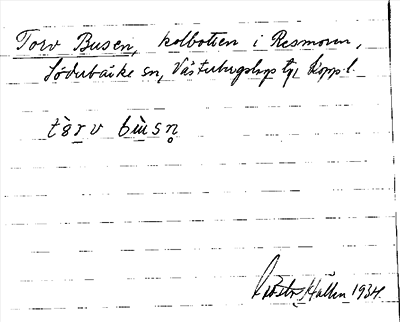 Torv Busen, kolbotten i Resmoren,
Söderbärke sn, Västerbergslags tgl Kopp. l.
tårv bùsn̥
Hallén 1934.